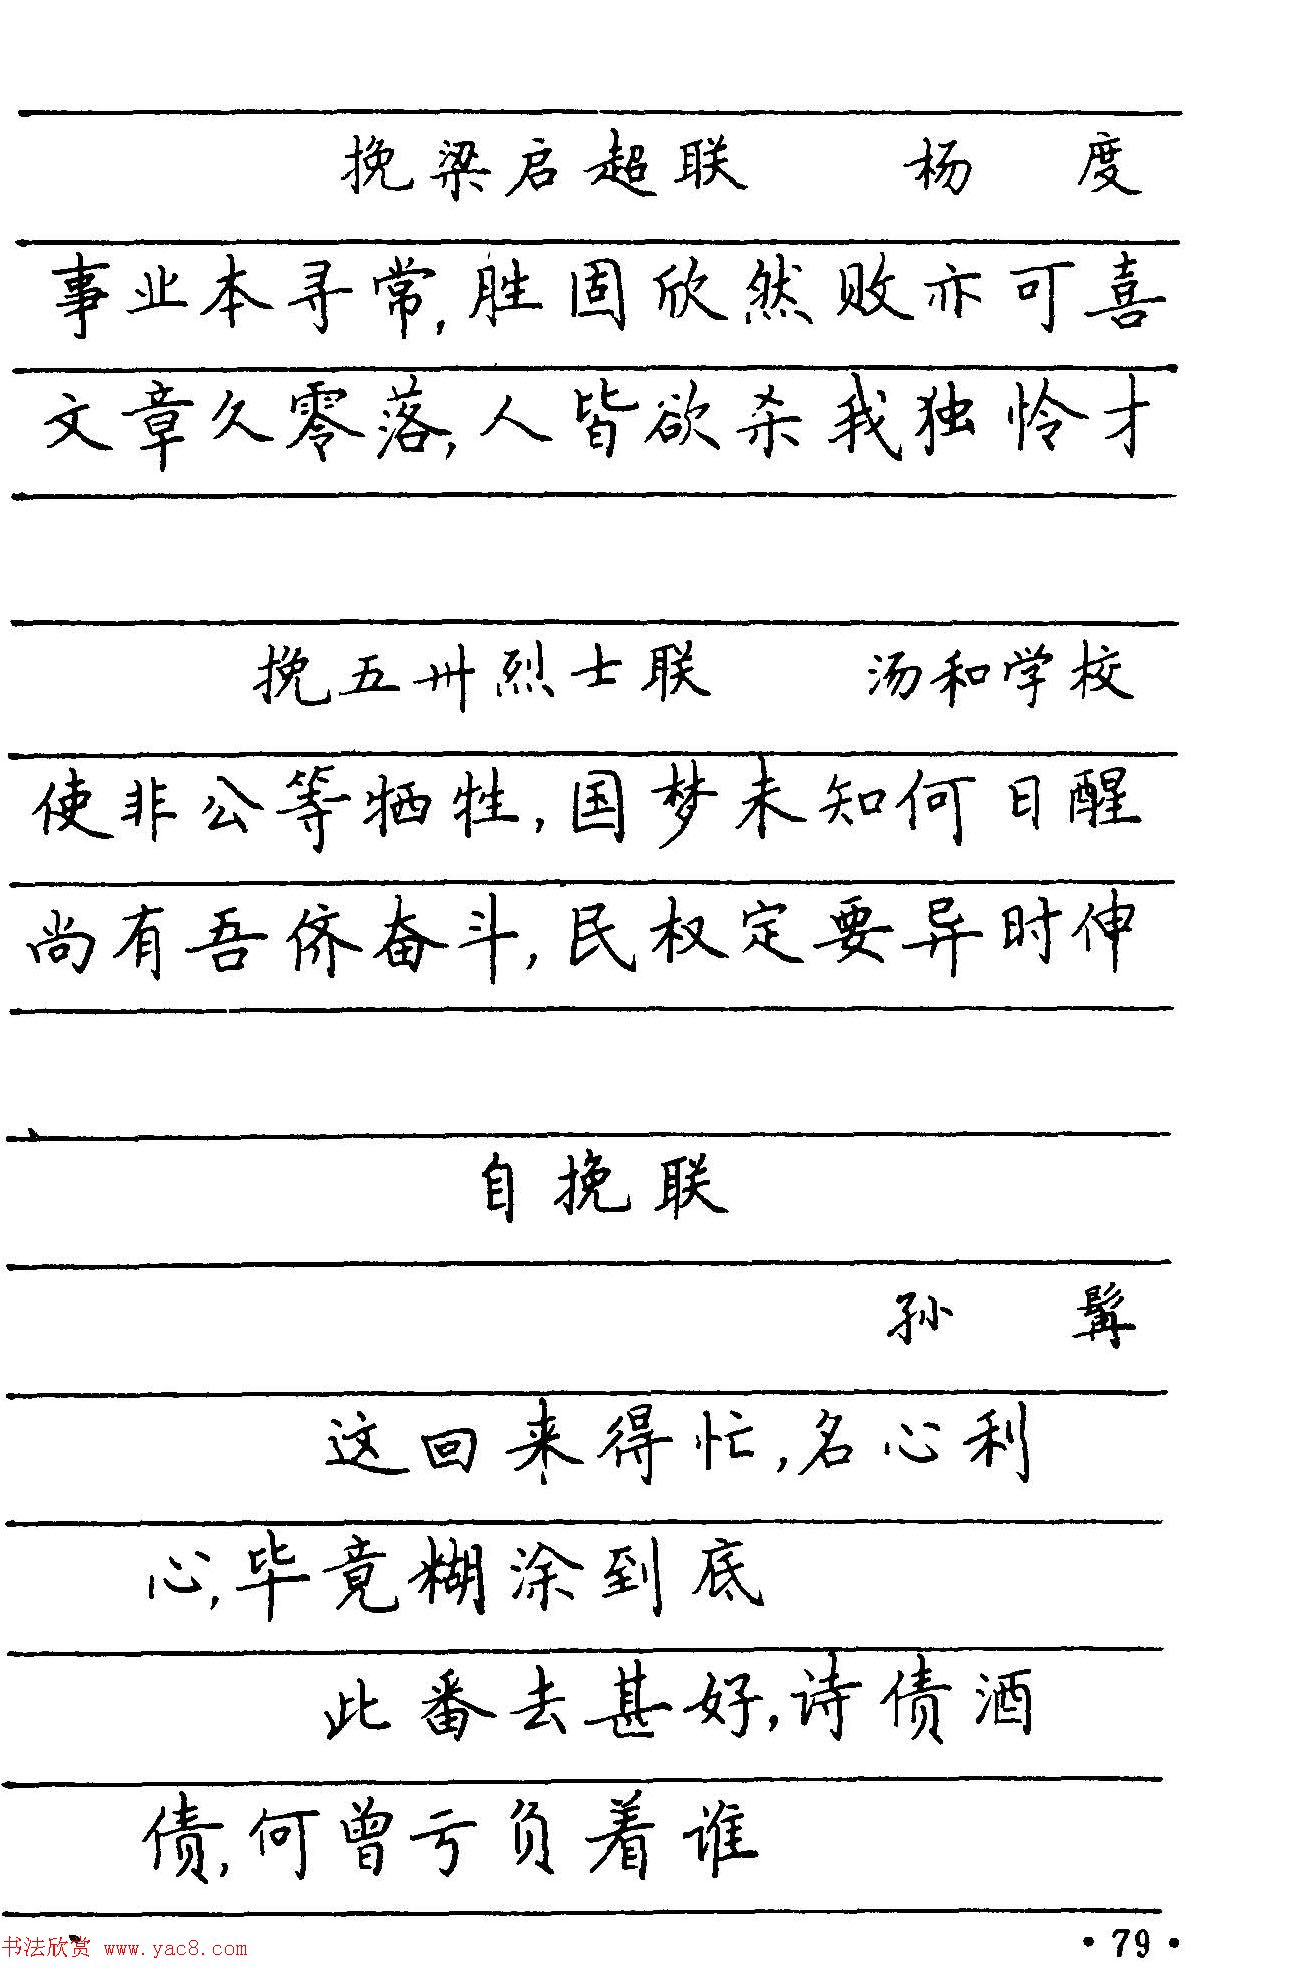 挽梁启超联 杨 度
事业本寻常,胜固欣然败亦可喜
文章久零落,人皆欲杀我独怜才
挽五卅烈士联 汤和学校
使非公等牺牲,国梦未知何日醒
尚有吾侪奋斗,民权定要异时伸
自挽联
孙 髯
这回来得忙,名心利
心,毕竟糊涂到底
此番去甚好,诗债酒
债,何曾亏负着谁
书法欣赏 www.yac8.com
·79·